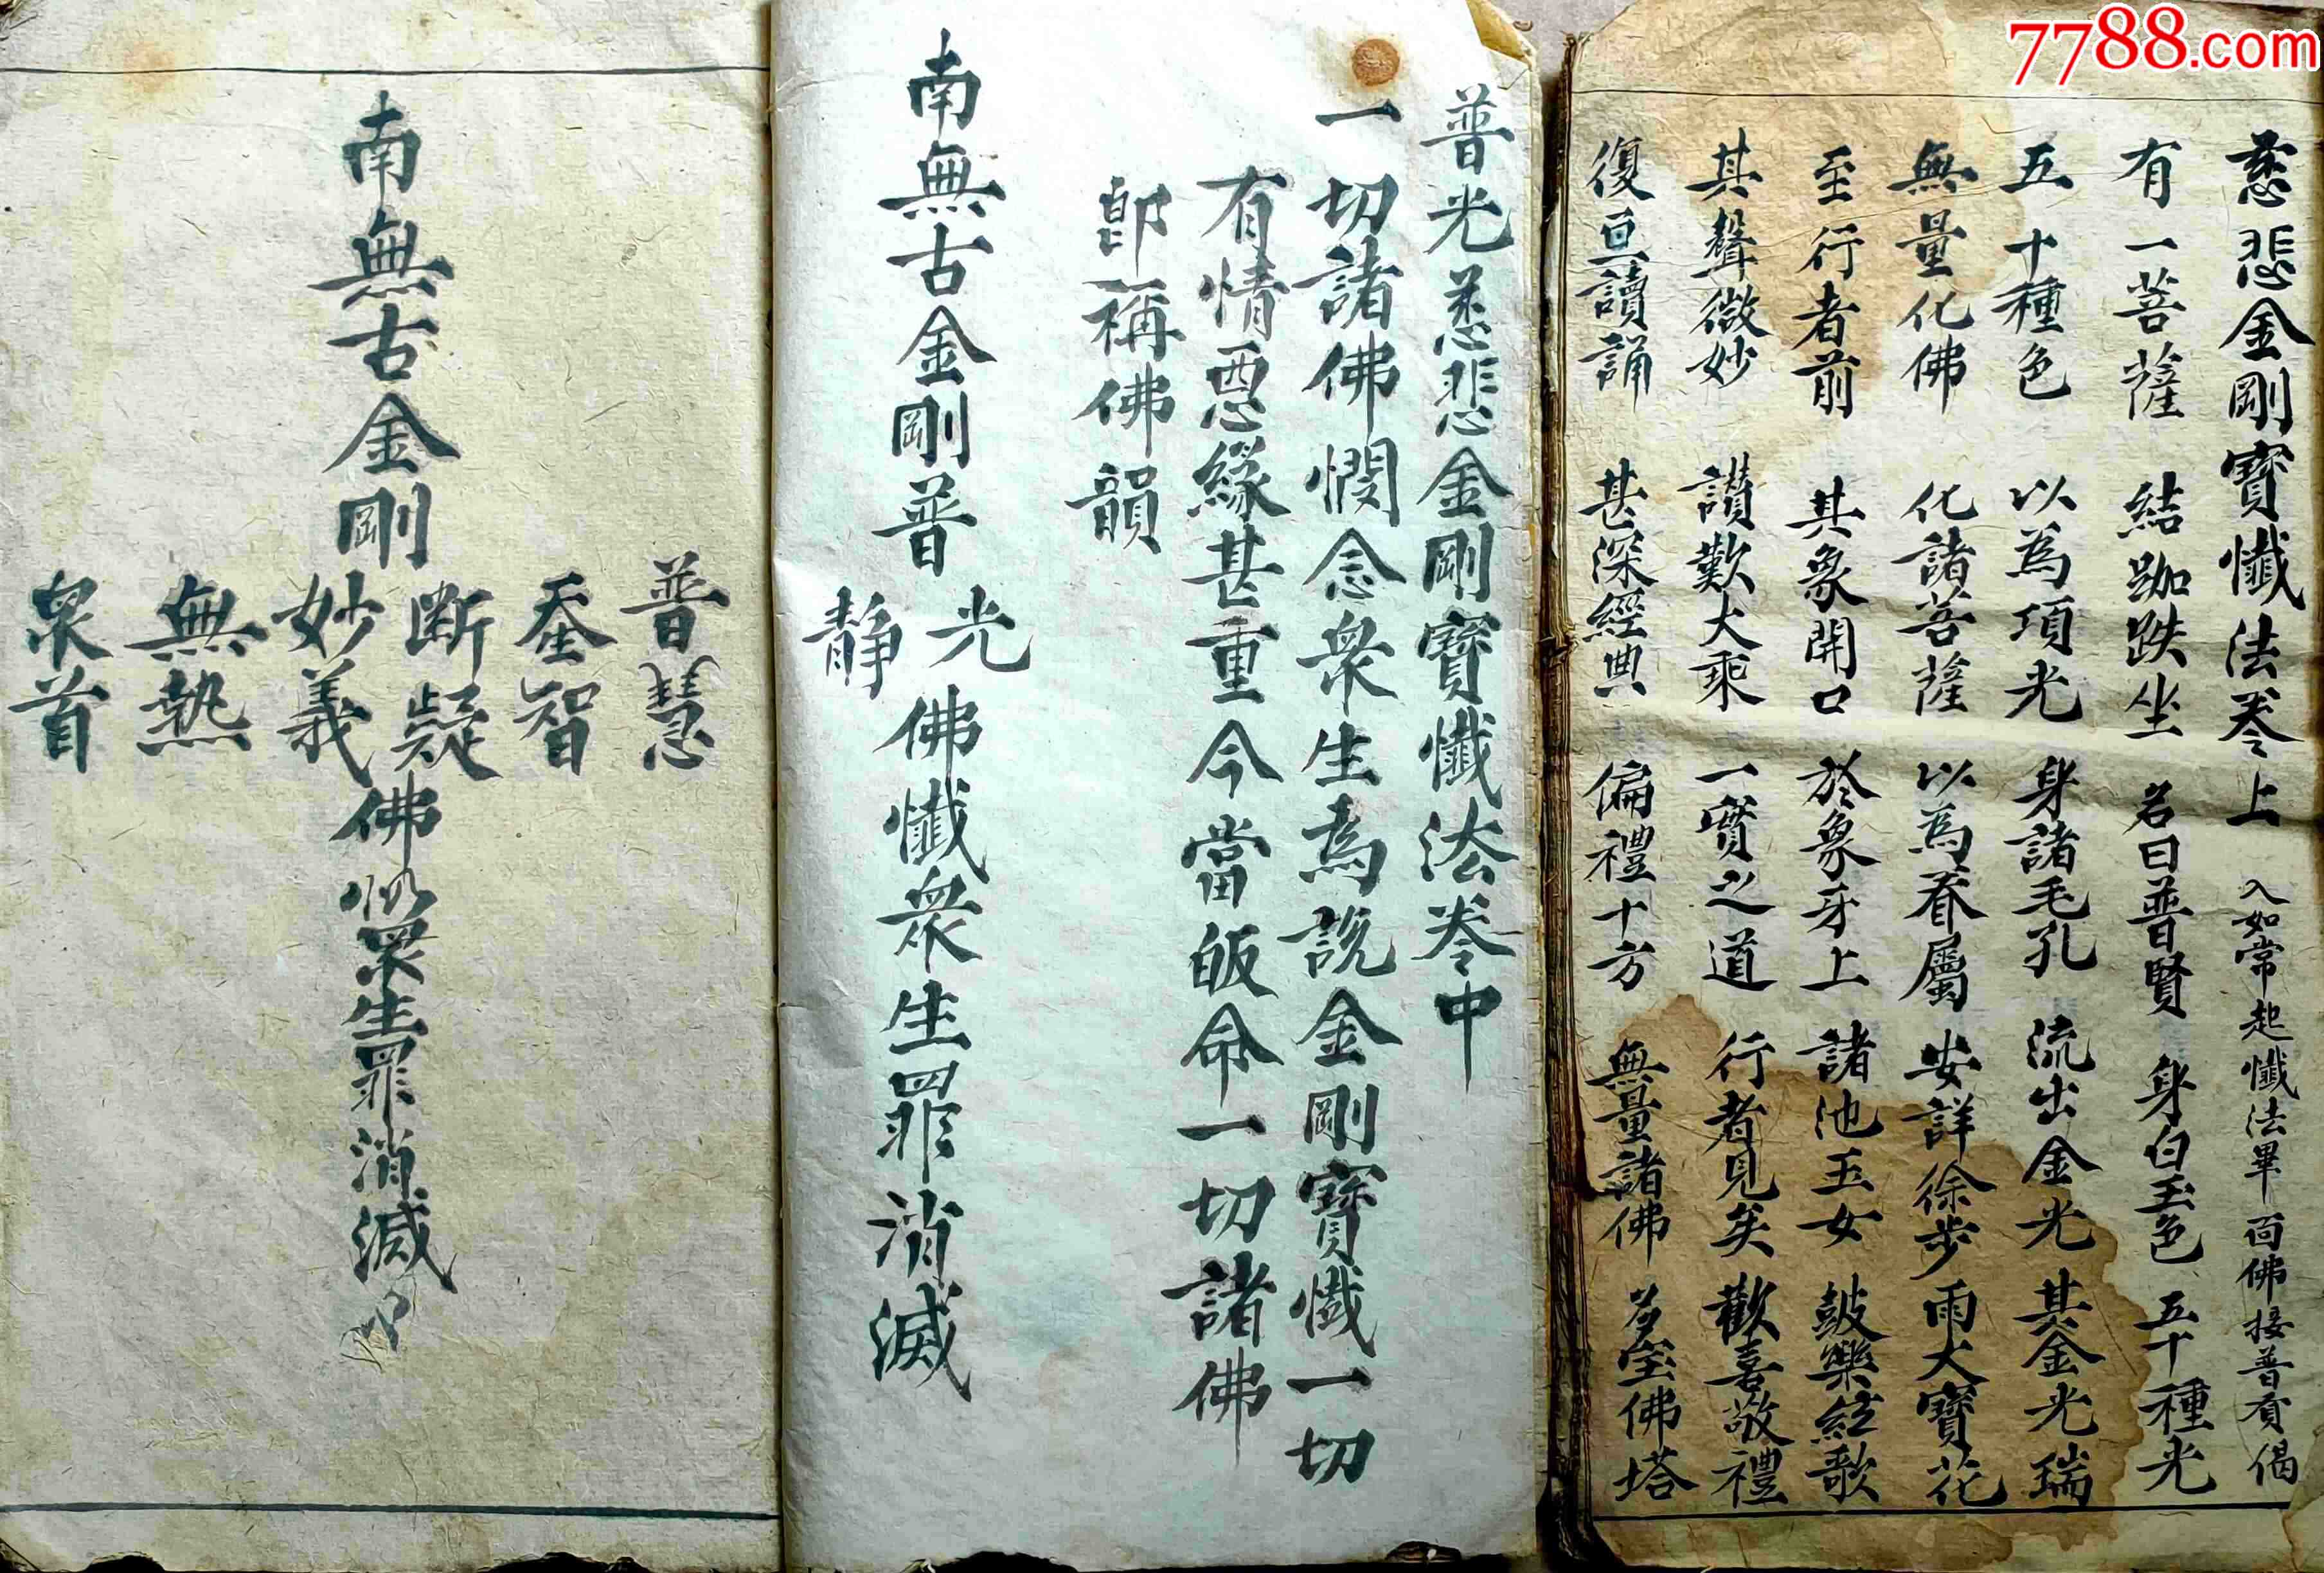 7788.com
慈悲金剛寶懺法卷上 入如常起懺法畢 向佛接普賢偈
有一菩薩 結跏趺坐 名曰普賢 身白玉色 五十種光
五十種色 以為項光 身諸毛孔 流出金光 其金光瑞
無量化佛 化諸菩薩 以為眷屬 安詳徐步 雨大寶花
至行者前 其象開口 於象牙上 諸池玉女 鼓樂絃歌
其聲微妙 讃歎大乘 一實之道 行者見矣 歡喜敬禮
復亘讀誦 甚深經典 偏禮十方 無量諸佛 多宝佛塔
普光慈悲金剛寶懺法卷中
一切諸佛憫念衆生為説金剛寶懺一切
有情恶緣甚重今當皈命一切諸佛
即稱佛韻
南無古金剛普 光 靜 佛懺衆生罪消滅
南無古金剛 普慧 奎智 断疑 妙義 無熱 衆首 佛懺眾生罪消滅